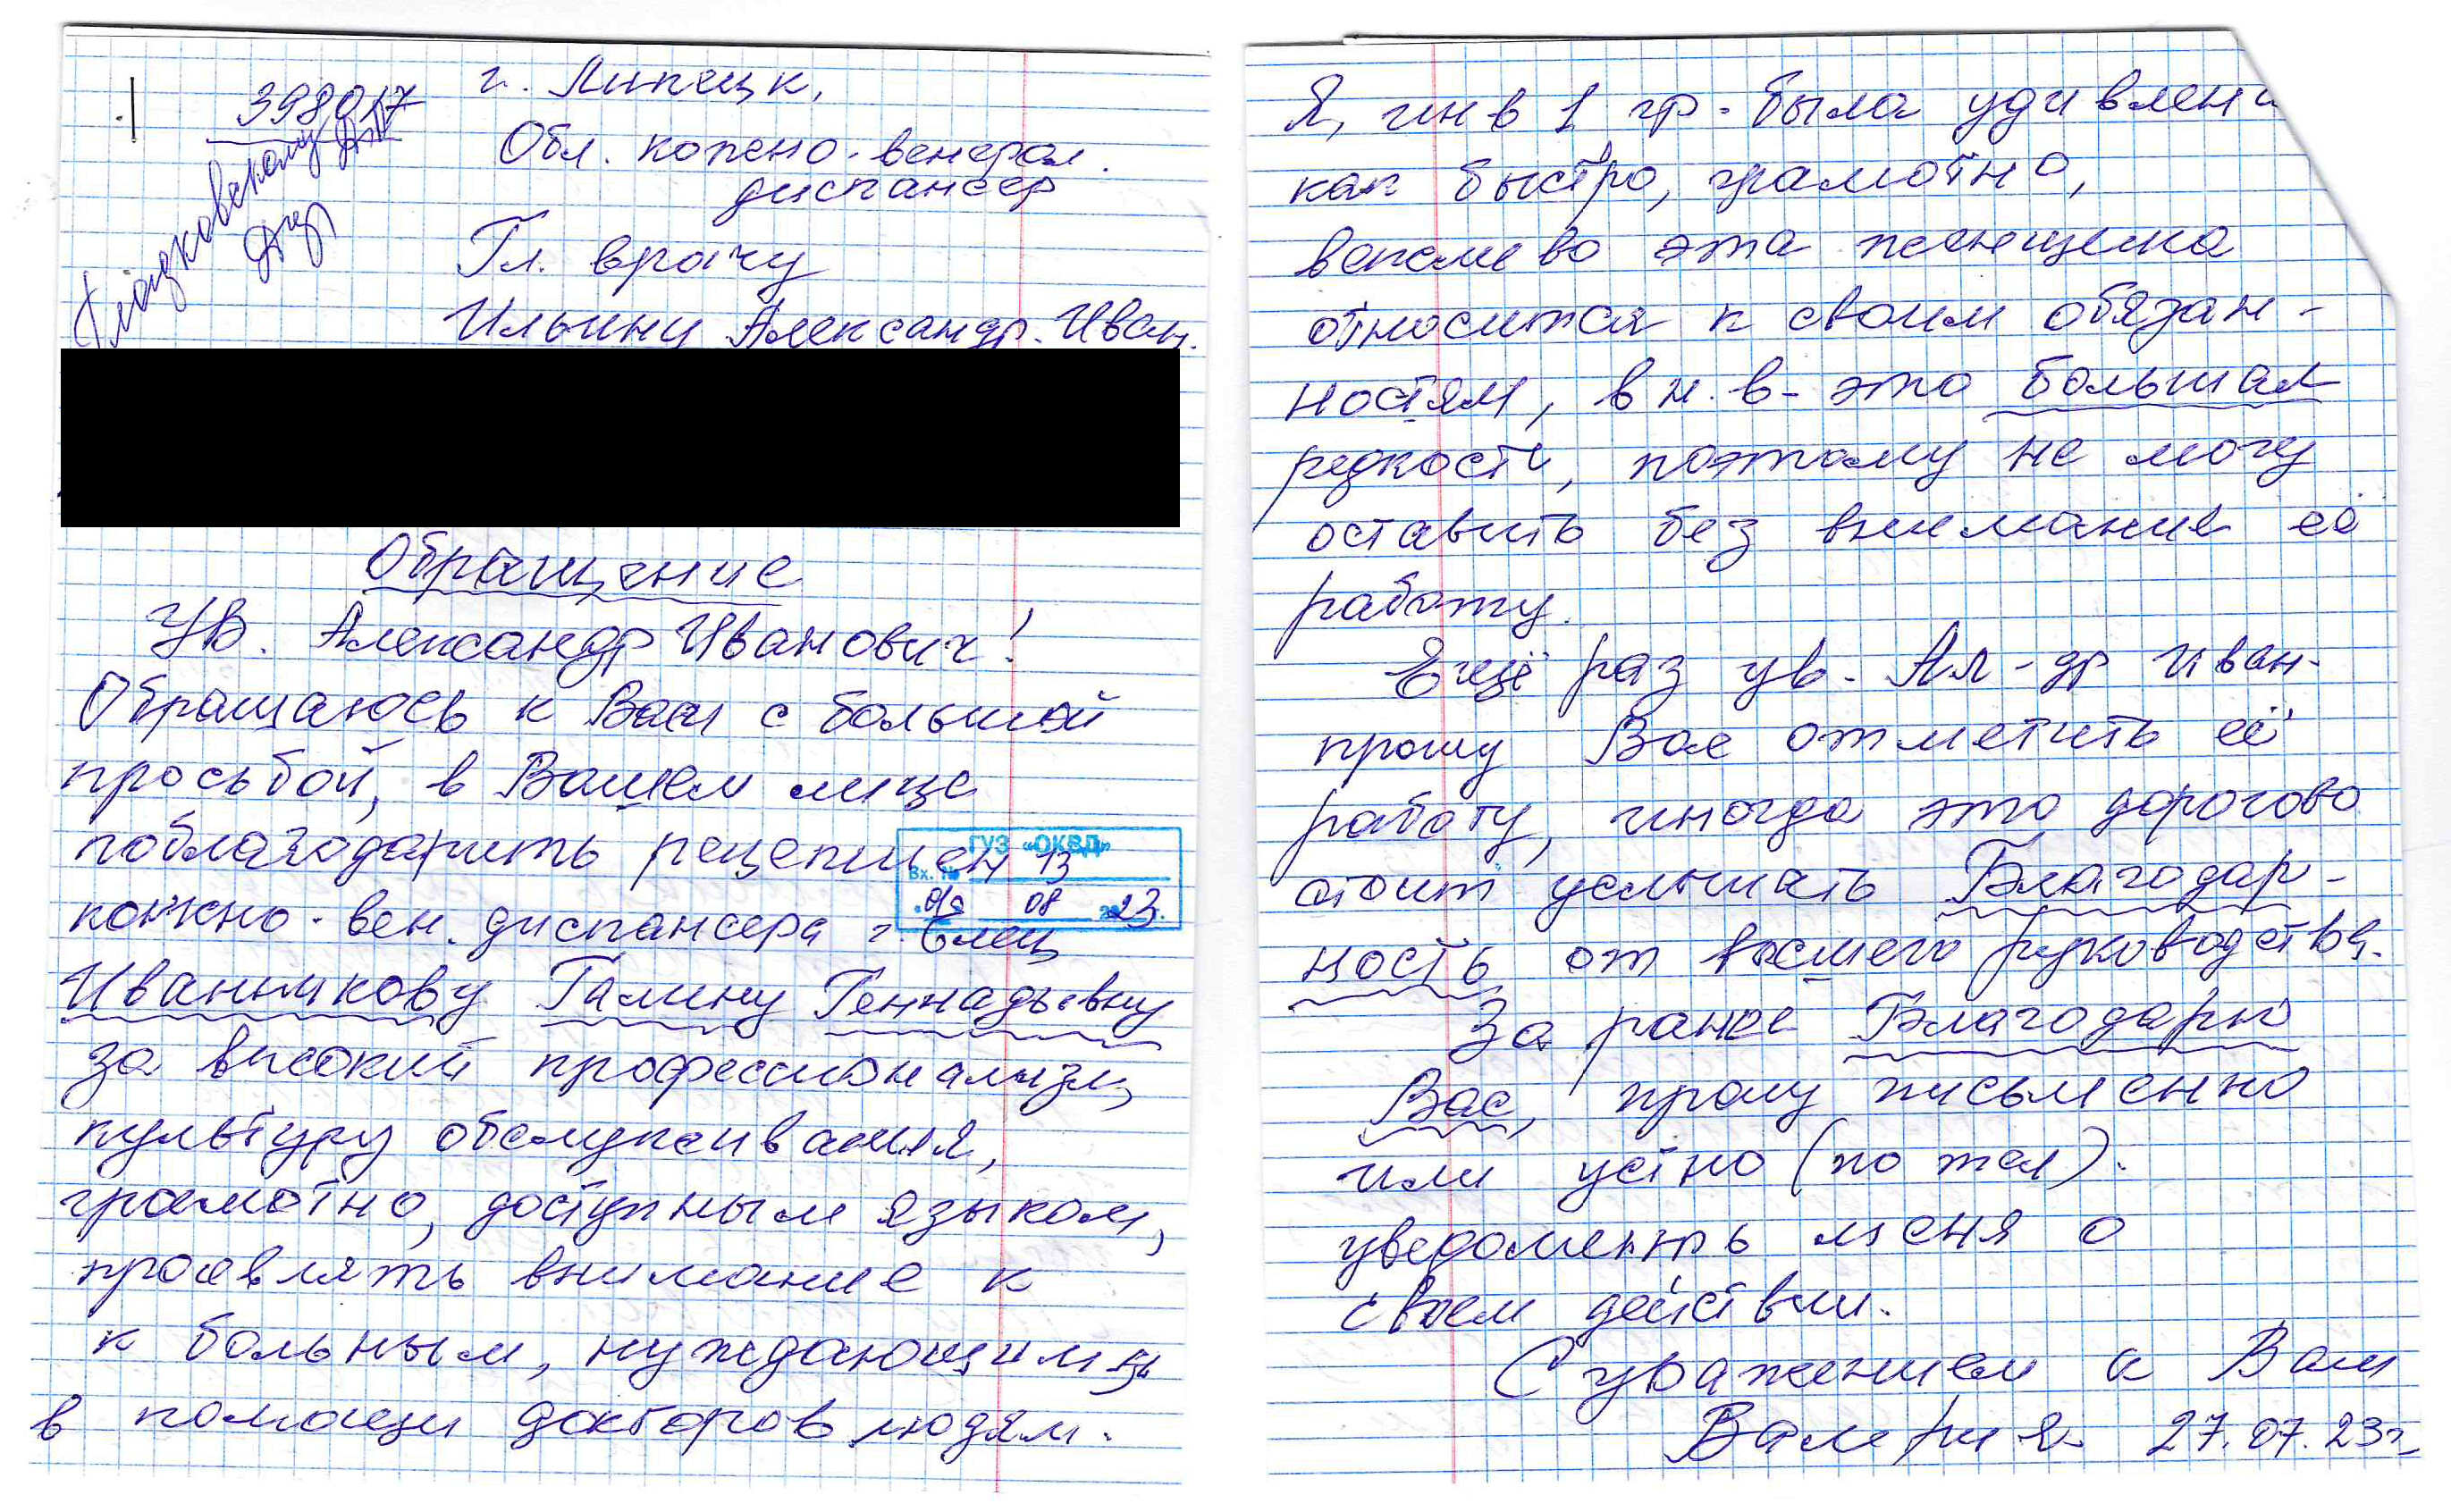 398017
г. Липецк,
Обл. кожено-венерол.
диспансер
Гл. врачу
Ильину Александр. Иван.
Обращение
Ув. Александр Иванович!
Обращаюсь к Вам с большой
просьбой, в Вашем лице
поблагодарить рецепшен
кожно-вен. диспансера г. Елец
Иванникову Галину Геннадьевну
за высокий профессионализм,
культуру обслуживания,
грамотно, доступным языком,
проявлять внимание к
к больным, нуждающимся
в помощи докторов людям.
ГУЗ «ОКВД»
Вх. № 13
08 2023г.
Я, инв 1 гр. была удивлена
как быстро, грамотно,
вежливо эта женщина
относится к своим обязан-
ностям, в н.в - это большая
редкость, поэтому не могу
оставить без внимание её
работу.
Ещё раз ув. Ал-др Иван.
прошу Вас отметить её
работу, иногда это дорогово
стоит услышать Благодар-
ность от высшего руководства.
За ранее Благодарю
Вас, прошу письменно
или устно (по тел).
уведомить меня о
своем действии.
С уважением к Вам
Валерия 27.07.23г